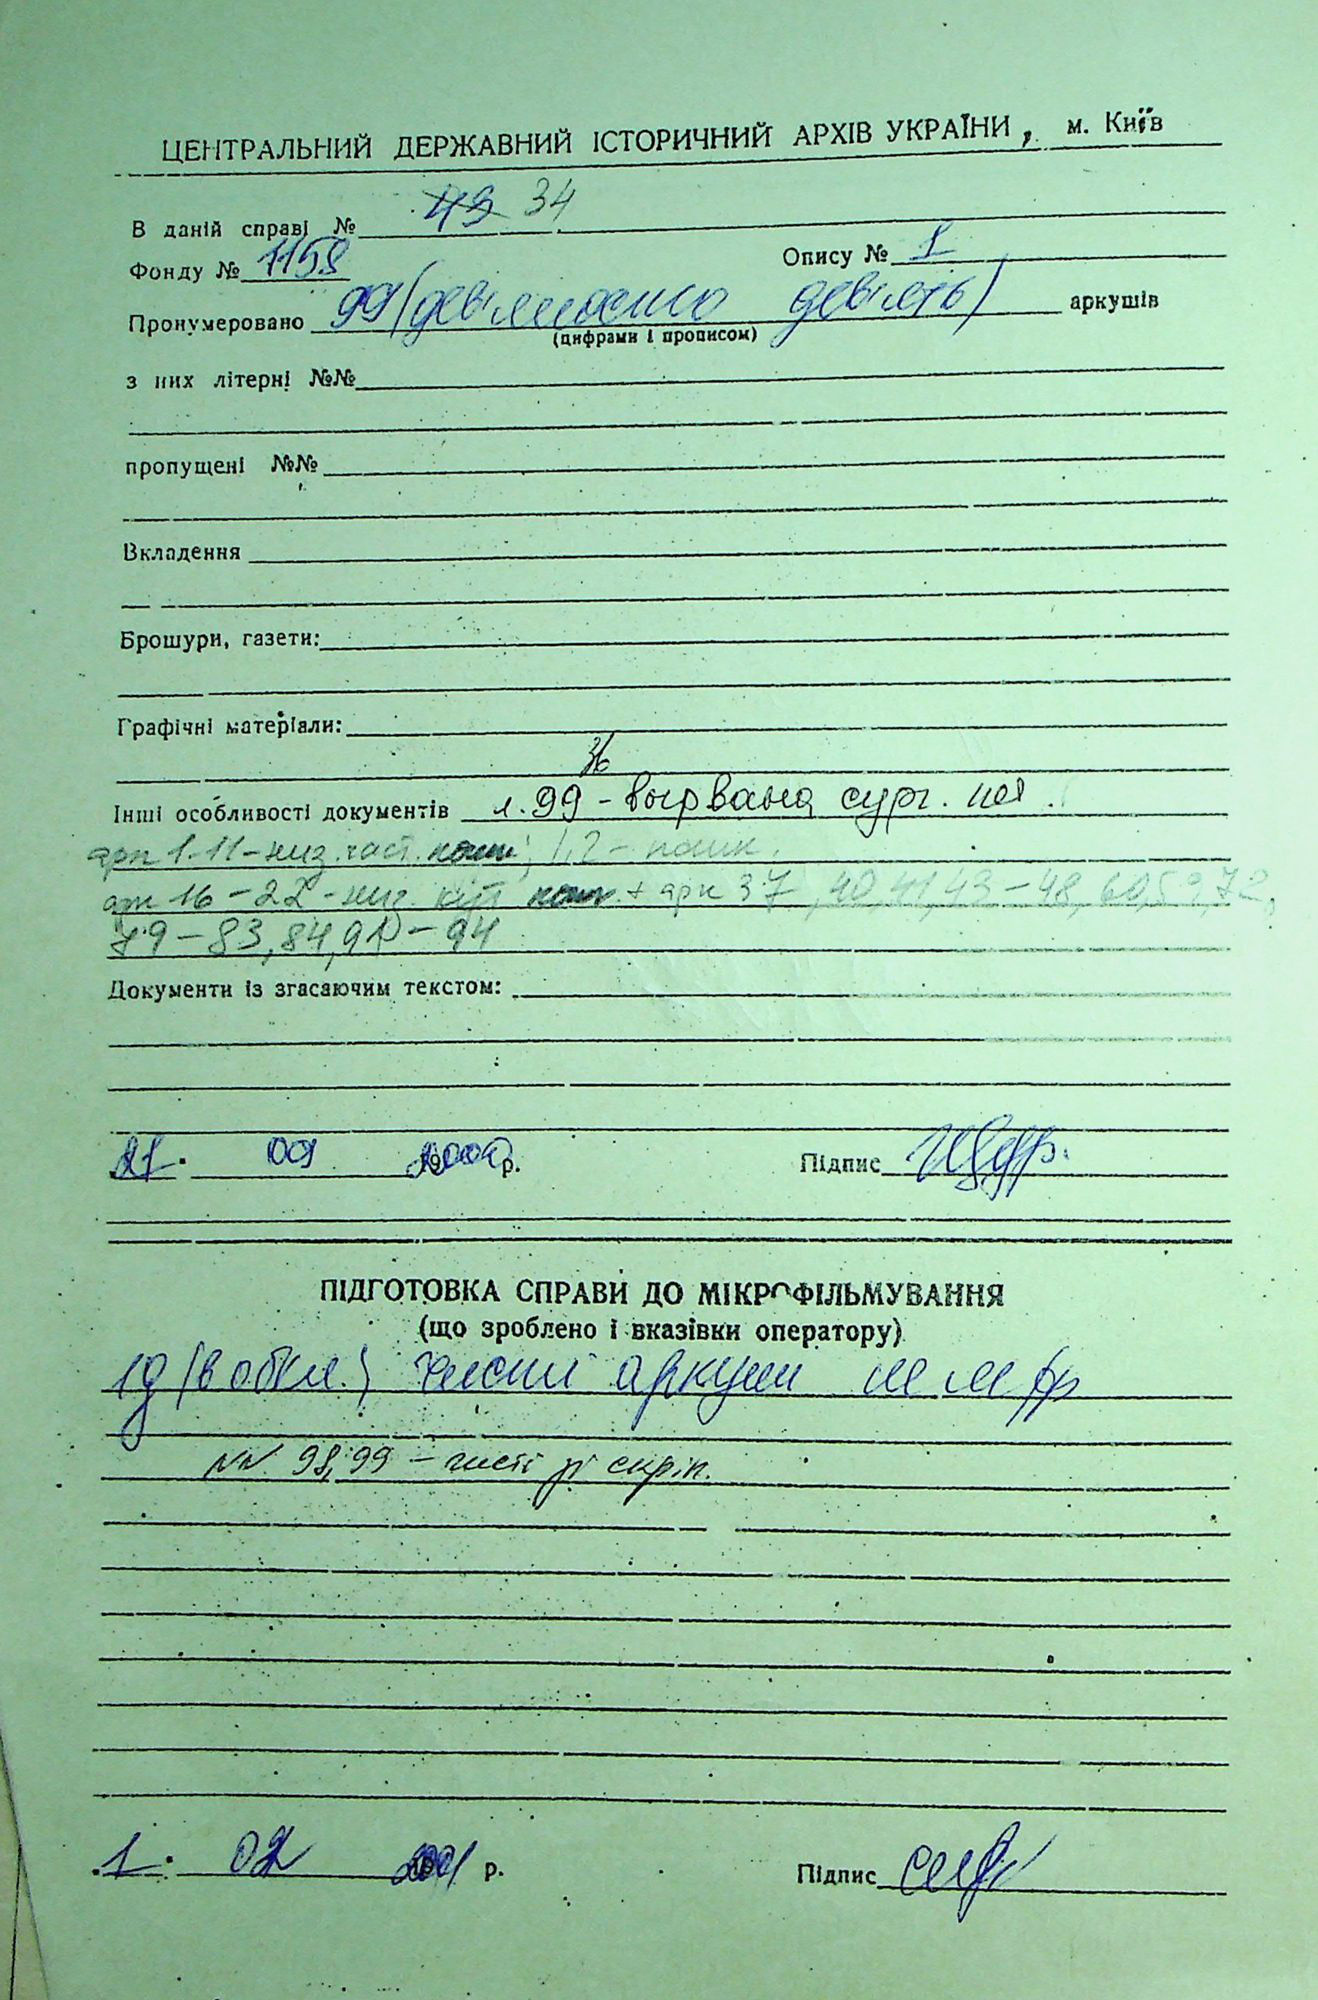 ЦЕНТРАЛЬНИЙ ДЕРЖАВНИЙ ІСТОРИЧНИЙ АРХІВ УКРАЇНИ, м. Київ
В даній справі № 49 34
Фонду № 1158 Опису № 1
Пронумеровано 99 (дев'яносто дев'ять) аркушів
(цифрами і прописом)
з них літерні №№
пропущені №№
Вкладення
Брошури, газети:
Графічні матеріали:
Інші особливості документів л. 99 - вырвана сург. печ.
арк 1-11 -ниж. част. 1,2 - пошк.
арк 16 - 22 - ниж. кут + арк 37, 40, 41, 43 - 48, 60, 59, 72,
79 - 83, 84, 90 - 94
Документи із згасаючим текстом:
21. 09 2000 р. Підпис
ПІДГОТОВКА СПРАВИ ДО МІКРОФІЛЬМУВАННЯ
(що зроблено і вказівки оператору)
чисті аркуші
NN 98, 99 - чисті зі скріп.
1. 02 2001 р. Підпис